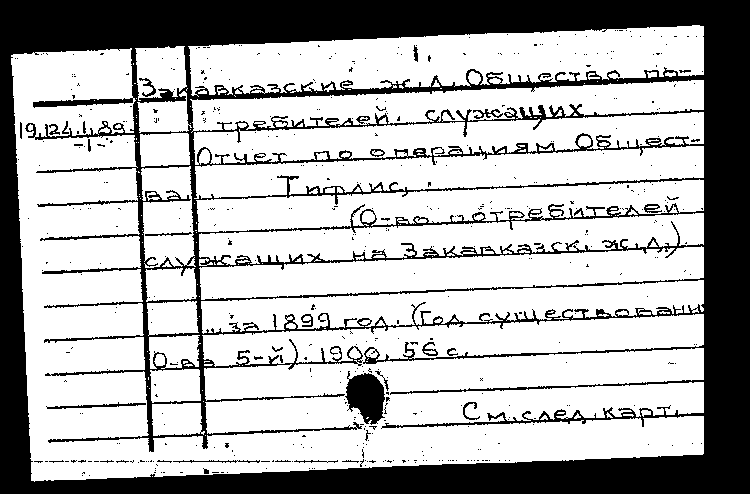 1.
Закавказские ж.д. Общество по-
19.124.1.89 требителей служащих.
-1-
Отчет по операциям Общест-
ва... Тифлис,
(О-во потребителей
служащих на Закавказск. ж.д.)
...за 1899 год. (Год существовани
О-ва 5-й). 1900. 56 с.
См. след. карт.